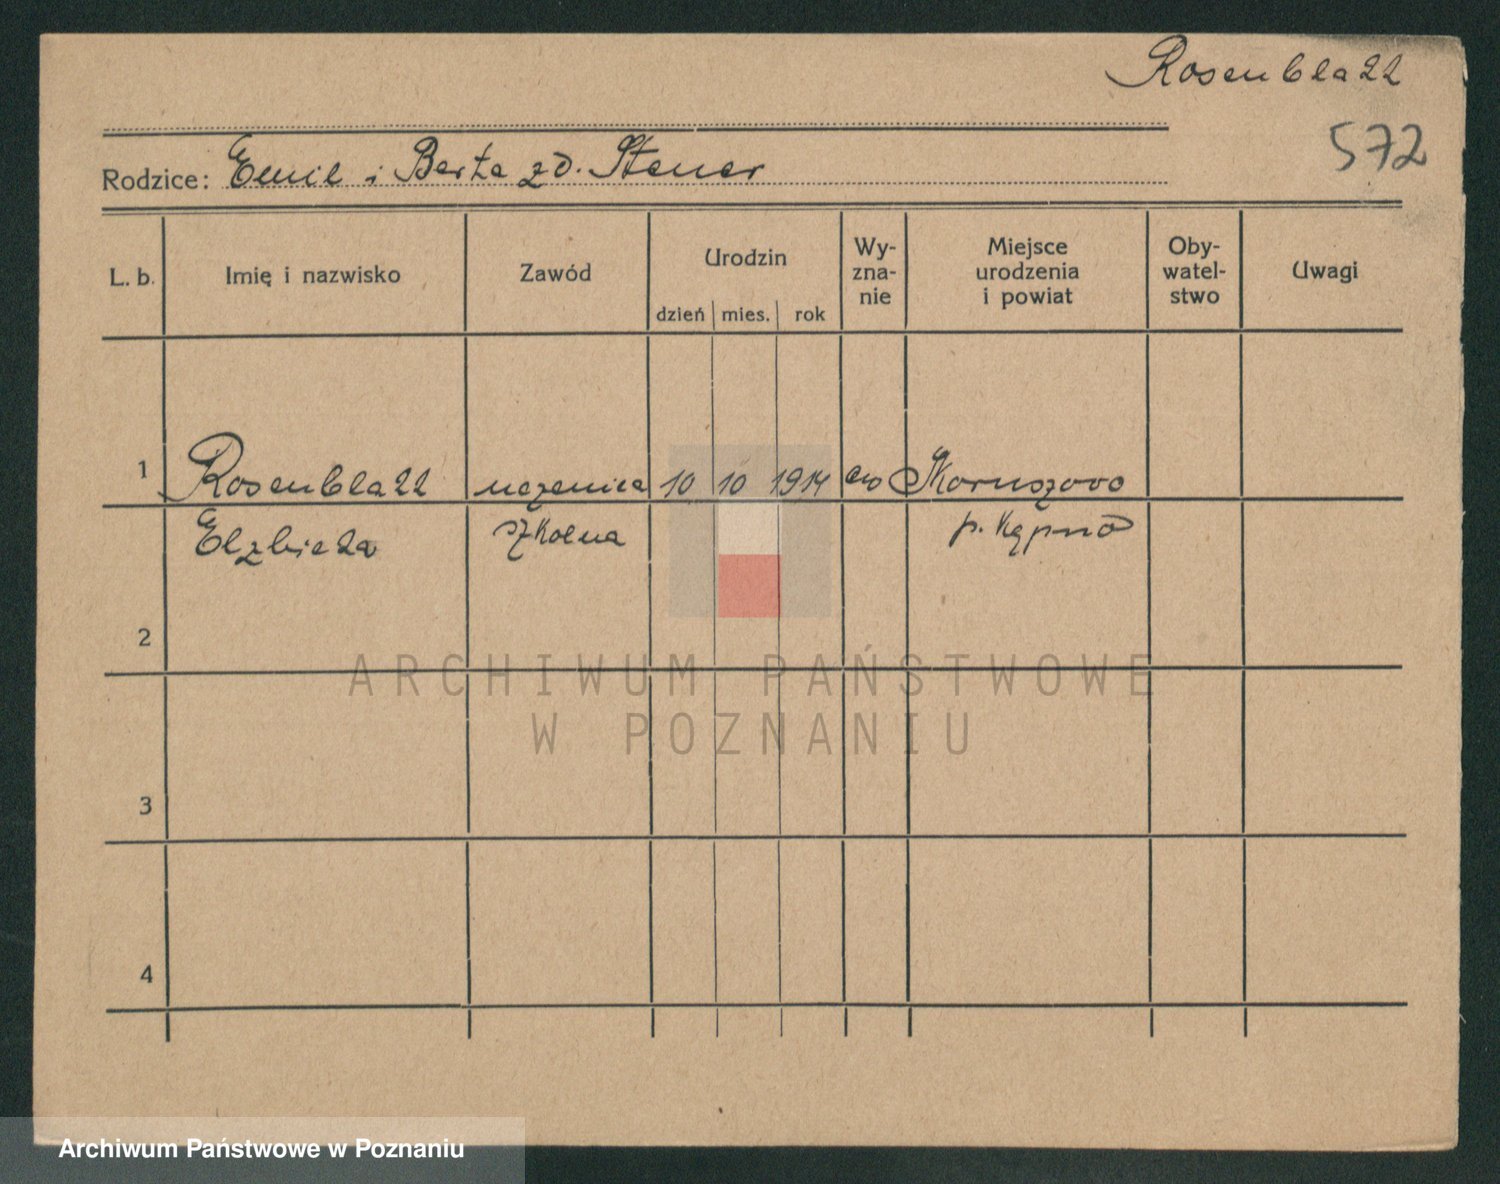 Rosenblatt
572
Rodzice: Emil i Berta zd. Steuer
L. b. Imię i nazwisko Zawód Urodzin dzień mies. rok Wy-zna-nie Miejsce urodzenia i powiat Oby-watel-stwo Uwagi
1 Rosenblatt uczenica 10 10 1914
Elzbieta szkolna p. Kępno
2
3
4
ARCHIWUM PAŃSTWOWE
W POZNANIU
Archiwum Państwowe w Poznaniu